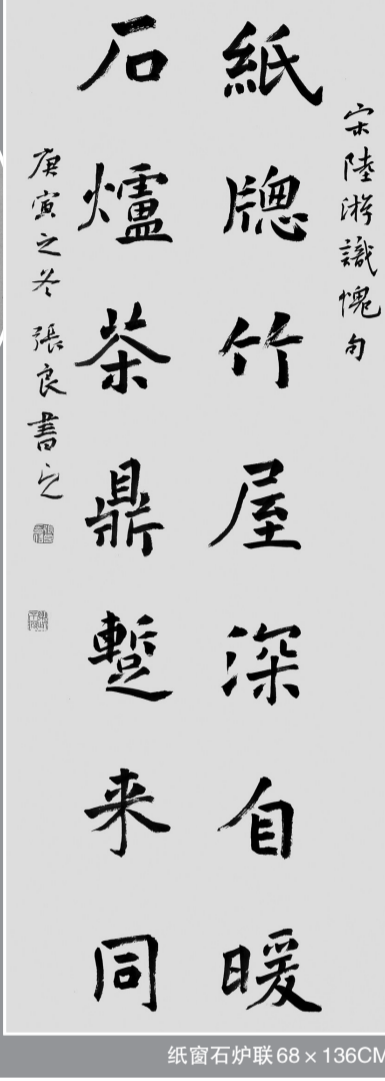 宋陸游識愧句
紙牕竹屋深自暖
石爐茶鼎蹔来同
庚寅之冬 張良書之
纸窗石炉联68×136CM